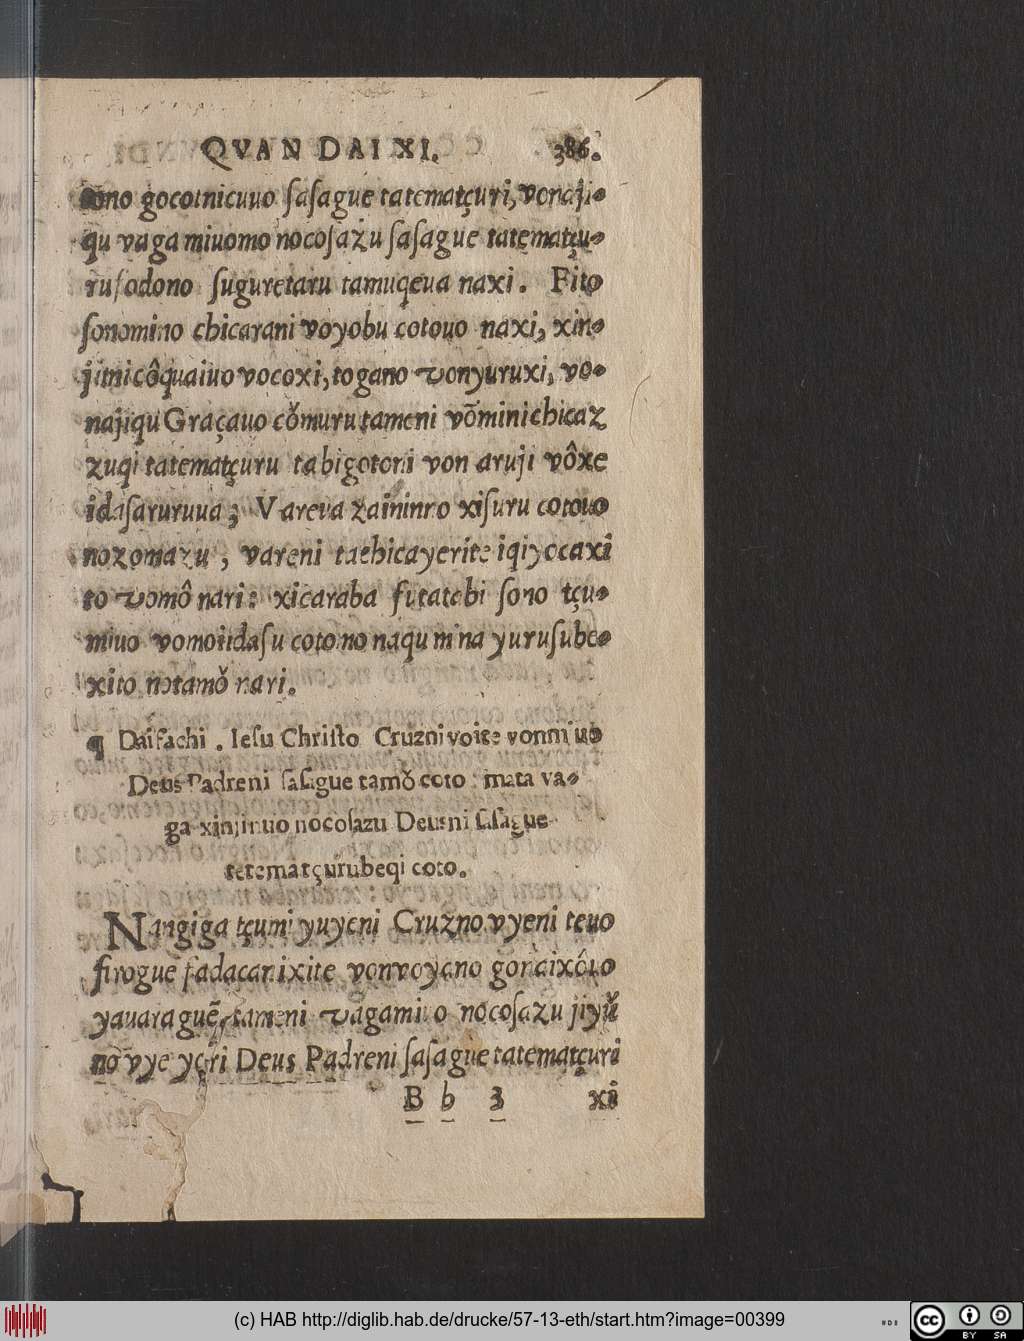 QVAN DAI XI. 386.
sono gocotnicuuo ſaſague tatematçuri, vonaji-
qu vaga miuomo nocoſazu ſaſague tatematçu-
ru ſodono ſuguretaru tamuqeua naxi. Fito
ſonomino chicarani voyobu cotouo naxi, xin-
jitni côquaiuo vocoxi, togano vonyuruxi, vo-
najiqu Graçauo cǒmuru tameni vōminichicaz
zuqi tatematçuru tabigotoni von aruji vôxe
idaſaruruua; Vareua zaininno xiſuru cotouo
nozomazu, vareni tachicayerite iqiyocaxi
to vomô nari: xicaraba futatabi ſono tçu-
miuo vomoiidaſu coto no naqu mina yuruſube-
xito notamǒ nari.
¶ Daifachi. Ieſu Chriſto Cruzni voite vonmiuo
Deus Padreni ſaſague tamǒ coto: mata va-
ga xinjinuo nocoſazu Deusni ſaſague
tatematçurubeqi coto.
Nangiga tçumi yuyeni Cruzno vyeni teuo
firogue fadacanixite vonvoyano gonaixôuo
yauaraguẽ tameni vagamiuo nocoſazu jiyǔ
no vye yori Deus Padreni ſaſague tatematçuri
B b 3 xi
(c) HAB http://diglib.hab.de/drucke/57-13-eth/start.htm?image=00399
cc BY SA